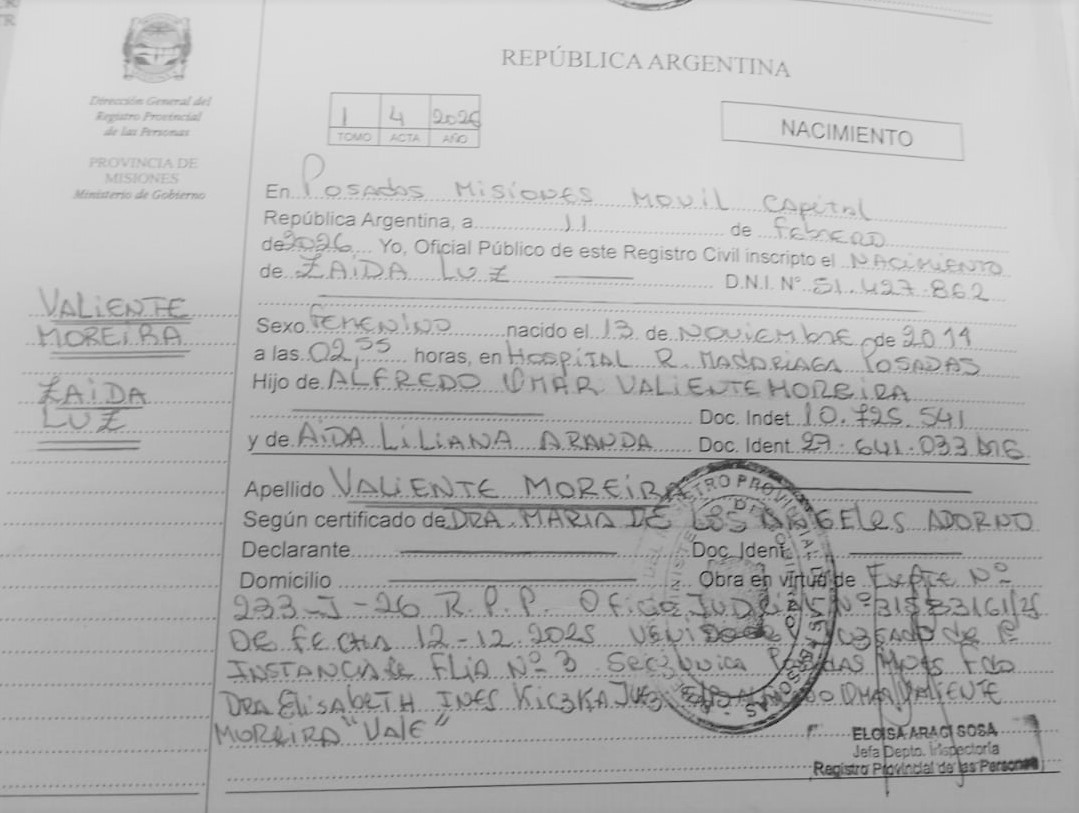 Dirección General del
Registro Provincial
de las Personas
PROVINCIA DE
MISIONES
Ministerio de Gobierno
REPÚBLICA ARGENTINA
1 4 2026
TOMO ACTA AÑO
NACIMIENTO
En Posadas Misiones Movil Capital
República Argentina, a 11 de febrero
de 2026 Yo, Oficial Público de este Registro Civil inscripto el NACIMIENTO
de ZAIDA LUZ D.N.I. Nº 51.427.862
VALIENTE
MOREIRA
ZAIDA
LUZ
Sexo femenino nacido el 13 de NOVIEMBRE de 2011
a las 02,55 horas, en HOSPITAL R. MADARIAGA POSADAS
Hijo de ALFREDO OMAR VALIENTE MOREIRA
Doc. Indet. 10.725.541
y de AIDA LILIANA ARANDA Doc. Ident. 27.641.033
Apellido VALIENTE MOREIRA
Según certificado de DRA. MARIA DE LOS ANGELES ADORNO
Declarante Doc. Ident.
Domicilio Obra en virtud de Expte Nº
233-J-26 R.P.P. Oficio Judicial Nº
DE fecha 12-12.2025 de 1º
INSTANCIA de FLIA Nº 3 Sec. unica Posadas Mnes Fdo
DRA ELISABETH INES KICZKA JUEZ OMAR VALIENTE
MOREIRA "VALE"
ELOISA ARACI SOSA
Jefa Depto. Inspectoria
Registro Provincial de las Personas